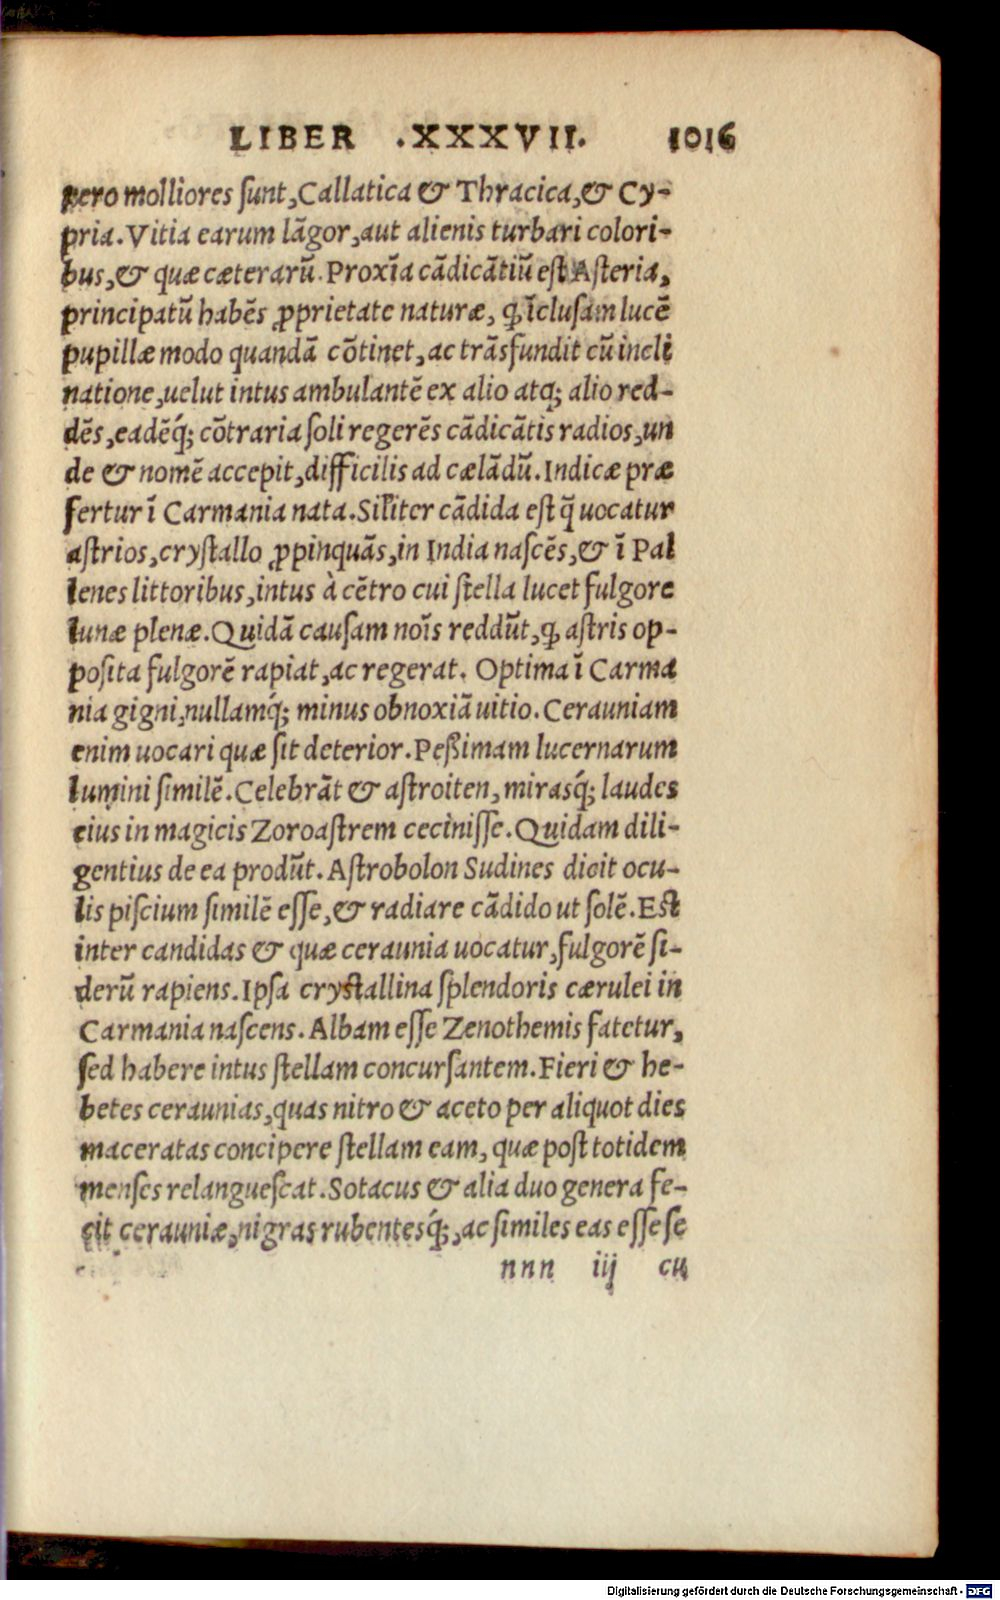 LIBER .XXXVII. 1016
pero molliores ſunt,Callatica & Thracica,& Cy-
pria.Vitia earum lãgor,aut alienis turbari colori-
bus,& quæ cæterarũ.Proxĩa cãdicãtiũ eſt Aſteria,
principatũ habẽs ꝓprietate naturæ, ꝙ ĩcluſam lucẽ
pupillæ modo quandã cõtinet, ac trãsfundit cũ incli
natione,uelut intus ambulantẽ ex alio atq; alio red-
dẽs,eadẽq́; cõtraria ſoli regerẽs cãdicãtis radios,un
de & nomẽ accepit,difficilis ad cælãdũ.Indicæ præ
fertur ĩ Carmania nata.Sil̃iter cãdida eſt q̃ uocatur
aſtrios,cryſtallo ꝓpinquãs,in India naſcẽs,& ĩ Pal
lenes littoribus,intus à cẽtro cui ſtella lucet fulgore
lunæ plenæ.Quidã cauſam noĩs reddũt,ꝙ aſtris op-
poſita fulgorẽ rapiat,ac regerat. Optima ĩ Carma
nia gigni,nullamq́; minus obnoxiã uitio.Cerauniam
enim uocari quæ ſit deterior.Peßimam lucernarum
lumini ſimilẽ.Celebrãt & aſtroiten, mirasq́; laudes
eius in magicis Zoroaſtrem ceciniſſe.Quidam dili-
gentius de ea produ͂t.Aſtrobolon Sudines dicit ocu-
lis piſcium ſimilẽ eſſe,& radiare cãdido ut ſolẽ.Eſt
inter candidas & quæ ceraunia uocatur,fulgorẽ ſi-
derũ rapiens.Ipſa cryſtallina ſplendoris cærulei in
Carmania naſcens.Albam eſſe Zenothemis fatetur,
ſed habere intus ſtellam concurſantem.Fieri & he-
betes ceraunias,quas nitro & aceto per aliquot dies
maceratas concipere ſtellam eam, quæ poſt totidem
menſes relangueſcat.Sotacus & alia duo genera fe-
cit cerauniæ,nigras rubentesq́;,ac ſimiles eas eſſe ſe
nnn iij cu
Digitalisierung gefördert durch die Deutsche Forschungsgemeinschaft - DFG